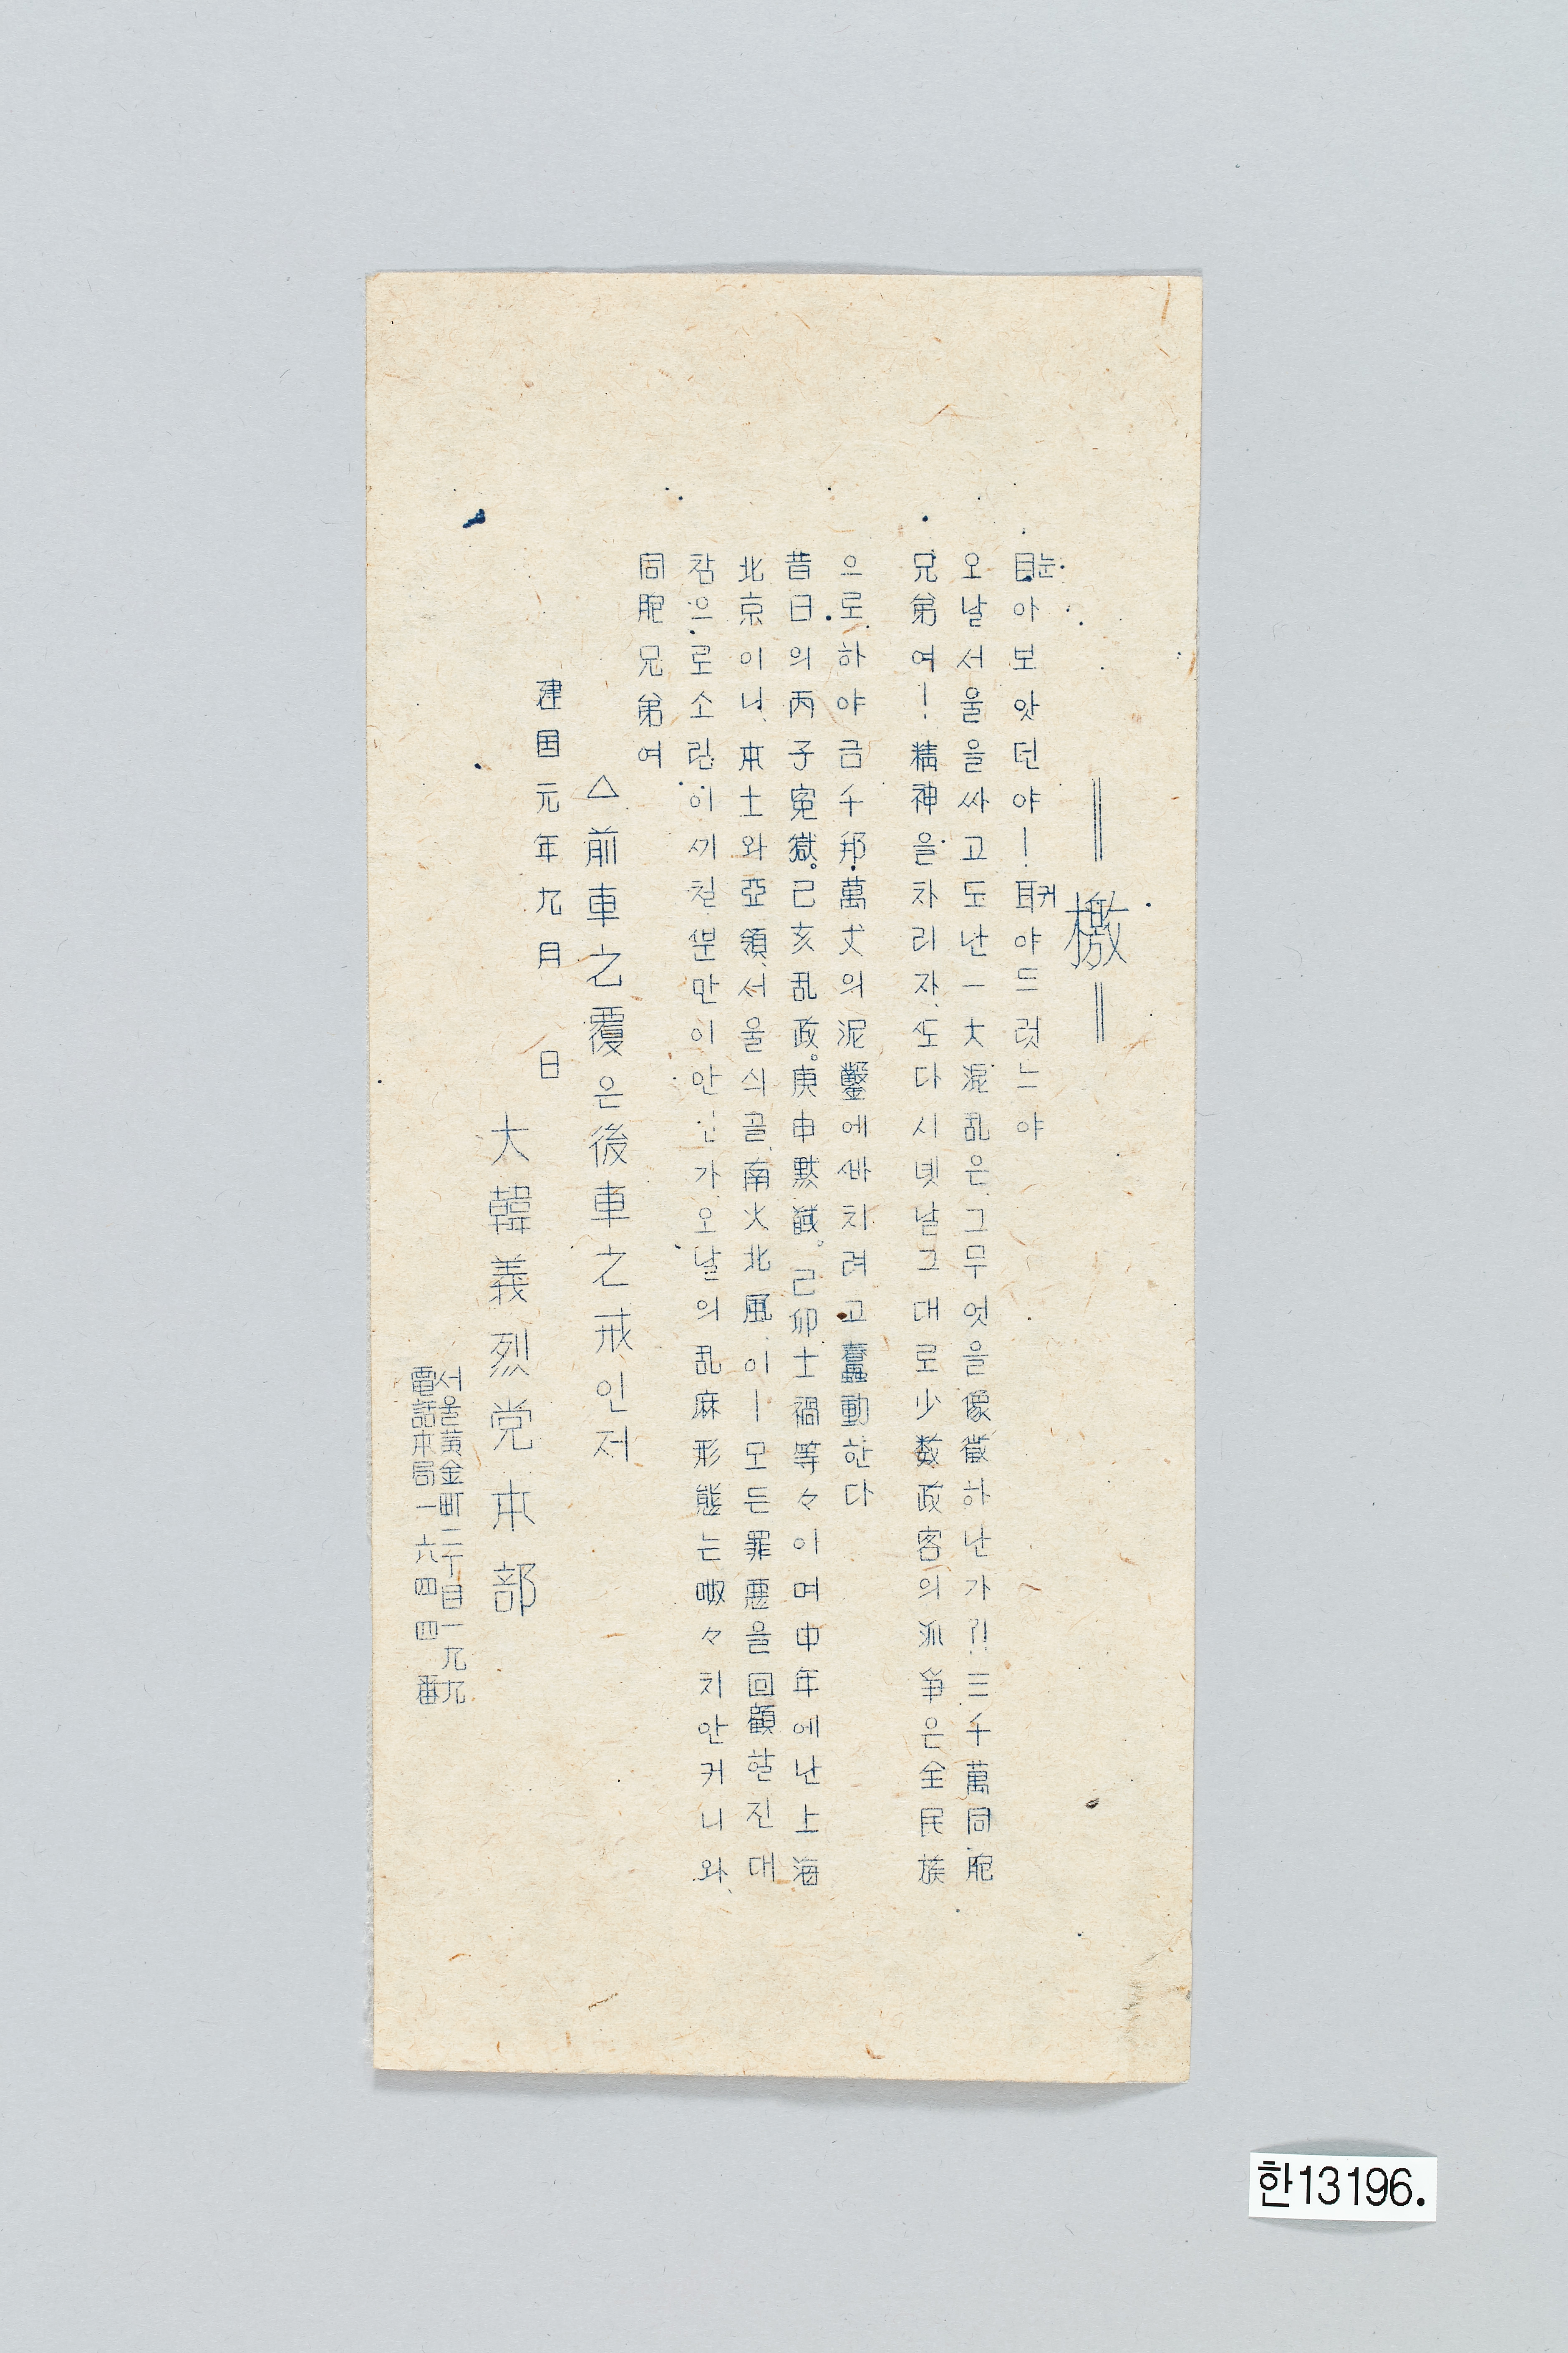 檄
目눈아보앗던야! 耳귀야드럿느야
오날서울을싸고도난一大混乱은그무엇을像徵하난가?! 三千萬同胞
兄弟여! 精神을차리자、또다시녯날그대로少数政客의派爭은全民族
으로하야금千邦、萬丈의泥鑿에빠치려고蠢動한다
昔日의丙子寃獄。己亥乱政。庚申黙試。己卯士禍等々이며中年에난上海
北京이니、本土와亞領、서울싀골、南火北風이ㅣ모든罪悪을回顧할진대
참으로소림이끼칠뿐만이안인가오날의乱麻形態는啾々치안커니와、
同胞兄弟여
△前車之覆은後車之戒인저
建国元年九月 日
大韓義烈党本部
서울黃金町二丁目一九九
電話本局一六四四番
한13196.